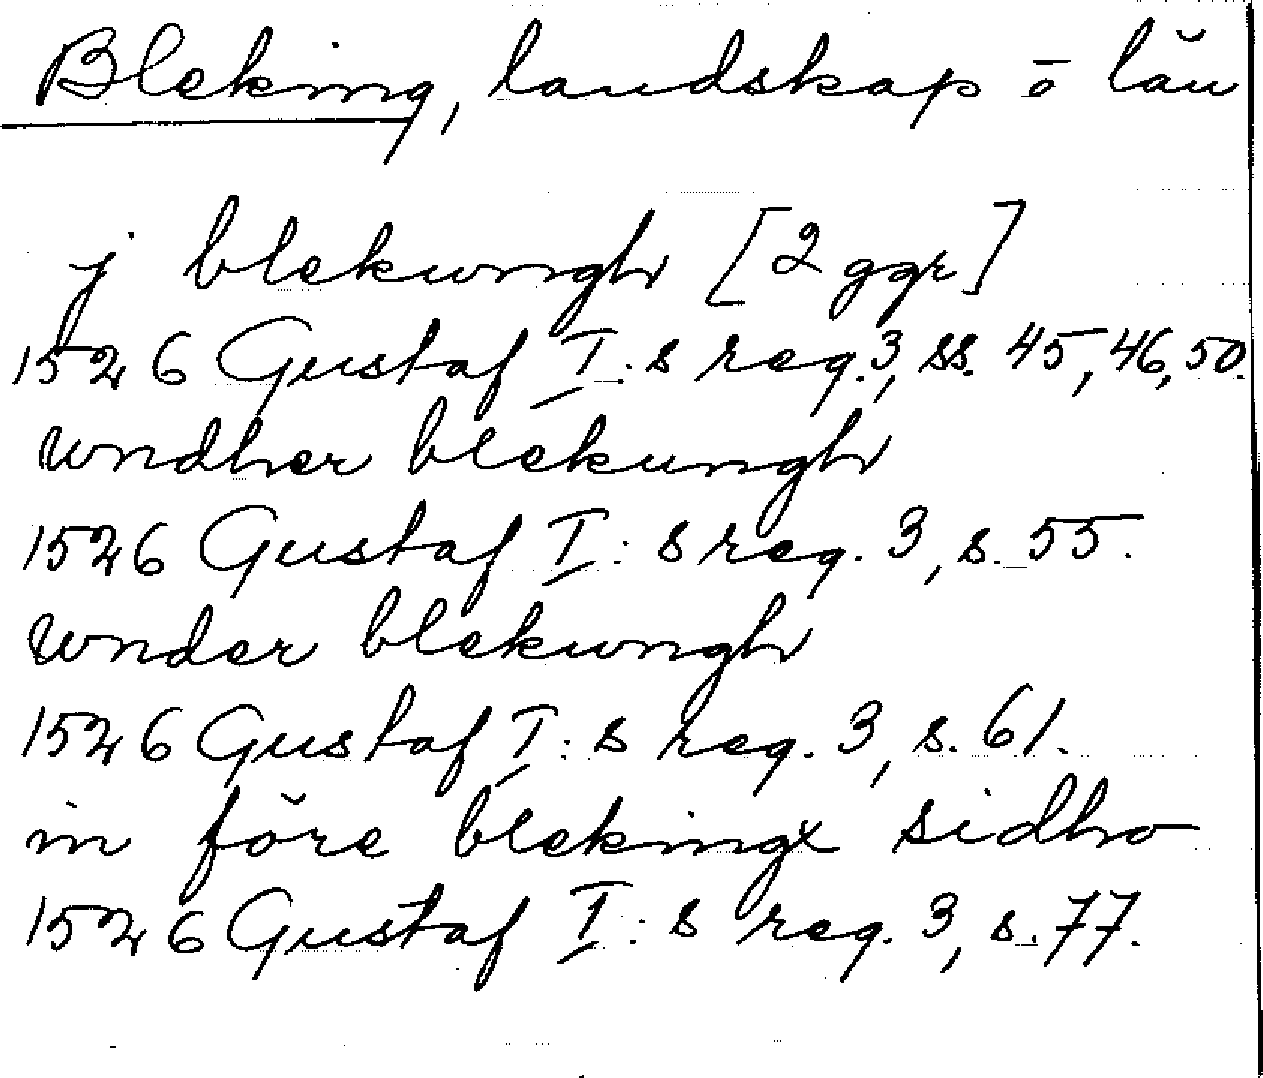 Bleking, landskap o län
j blekwngh [2 ggr]
1526 Gustaf I:s reg. 3, ss. 45, 46, 50.
wndher blekungh
1526 Gustaf I:s reg. 3, s. 55.
wnder blekwngh
1526 Gustaf I:s reg. 3, s. 61.
in före blekingx sidho
1526 Gustaf I:s reg. 3, s. 77.